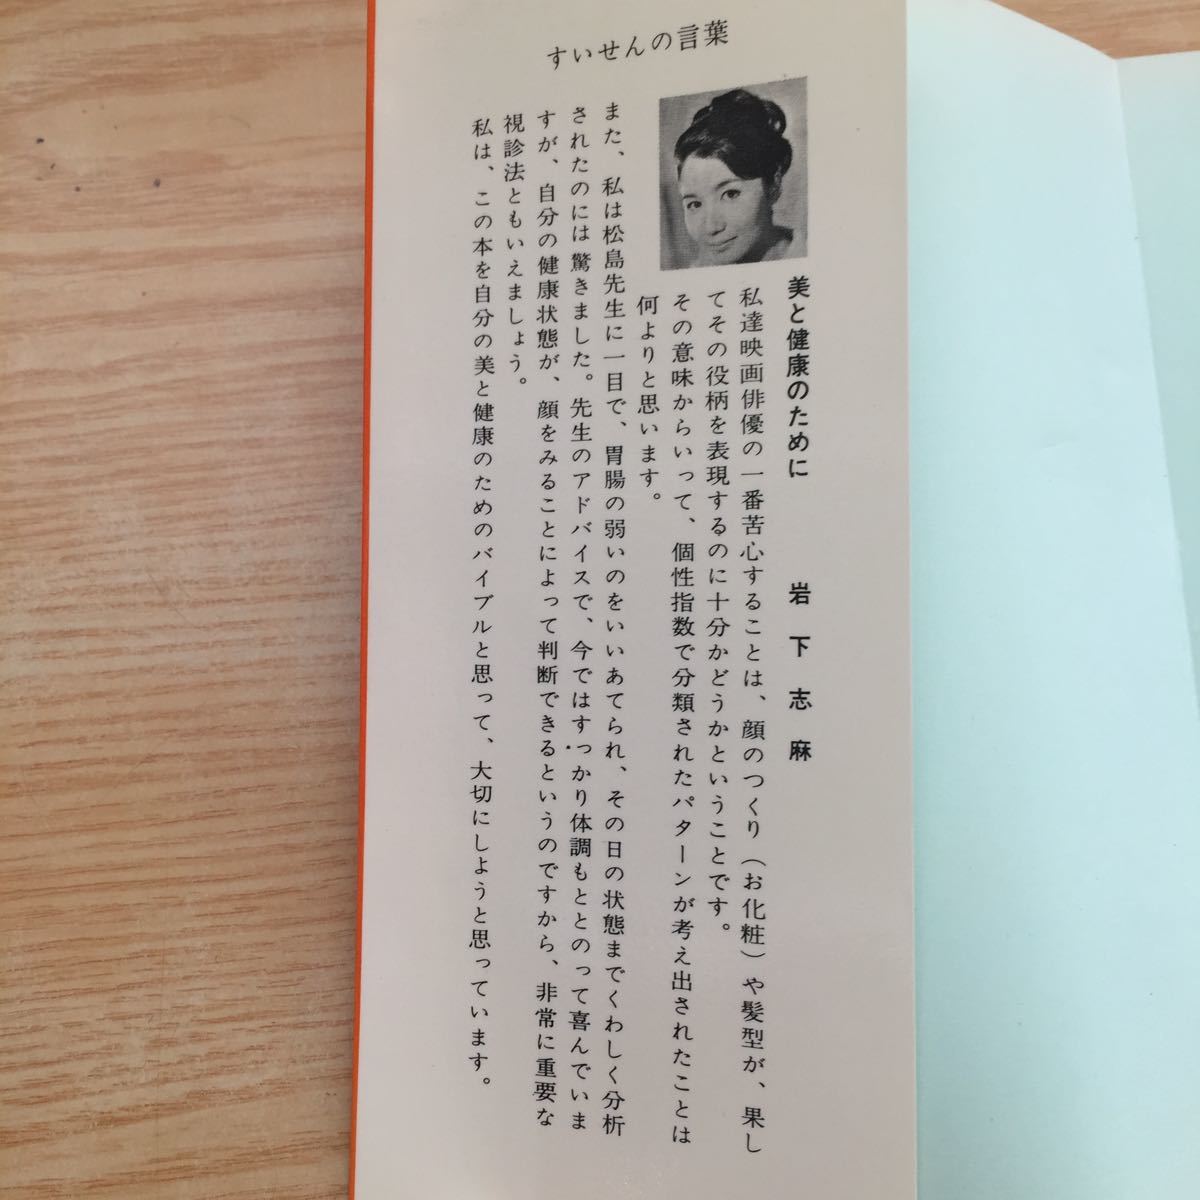 すいせんの言葉
美と健康のために　岩下志麻
私達映画俳優の一番苦心することは、顔のつくり（お化粧）や髪型が、果し
てその役柄を表現するのに十分かどうかということです。
その意味からいって、個性指数で分類されたパターンが考え出されたことは
何よりと思います。
また、私は松島先生に一目で、胃腸の弱いのをいいあてられ、その日の状態までくわしく分析
されたのには驚きました。先生のアドバイスで、今ではすっかり体調もととのって喜んでいま
すが、自分の健康状態が、顔をみることによって判断できるというのですから、非常に重要な
視診法ともいえましょう。
私は、この本を自分の美と健康のためのバイブルと思って、大切にしようと思っています。